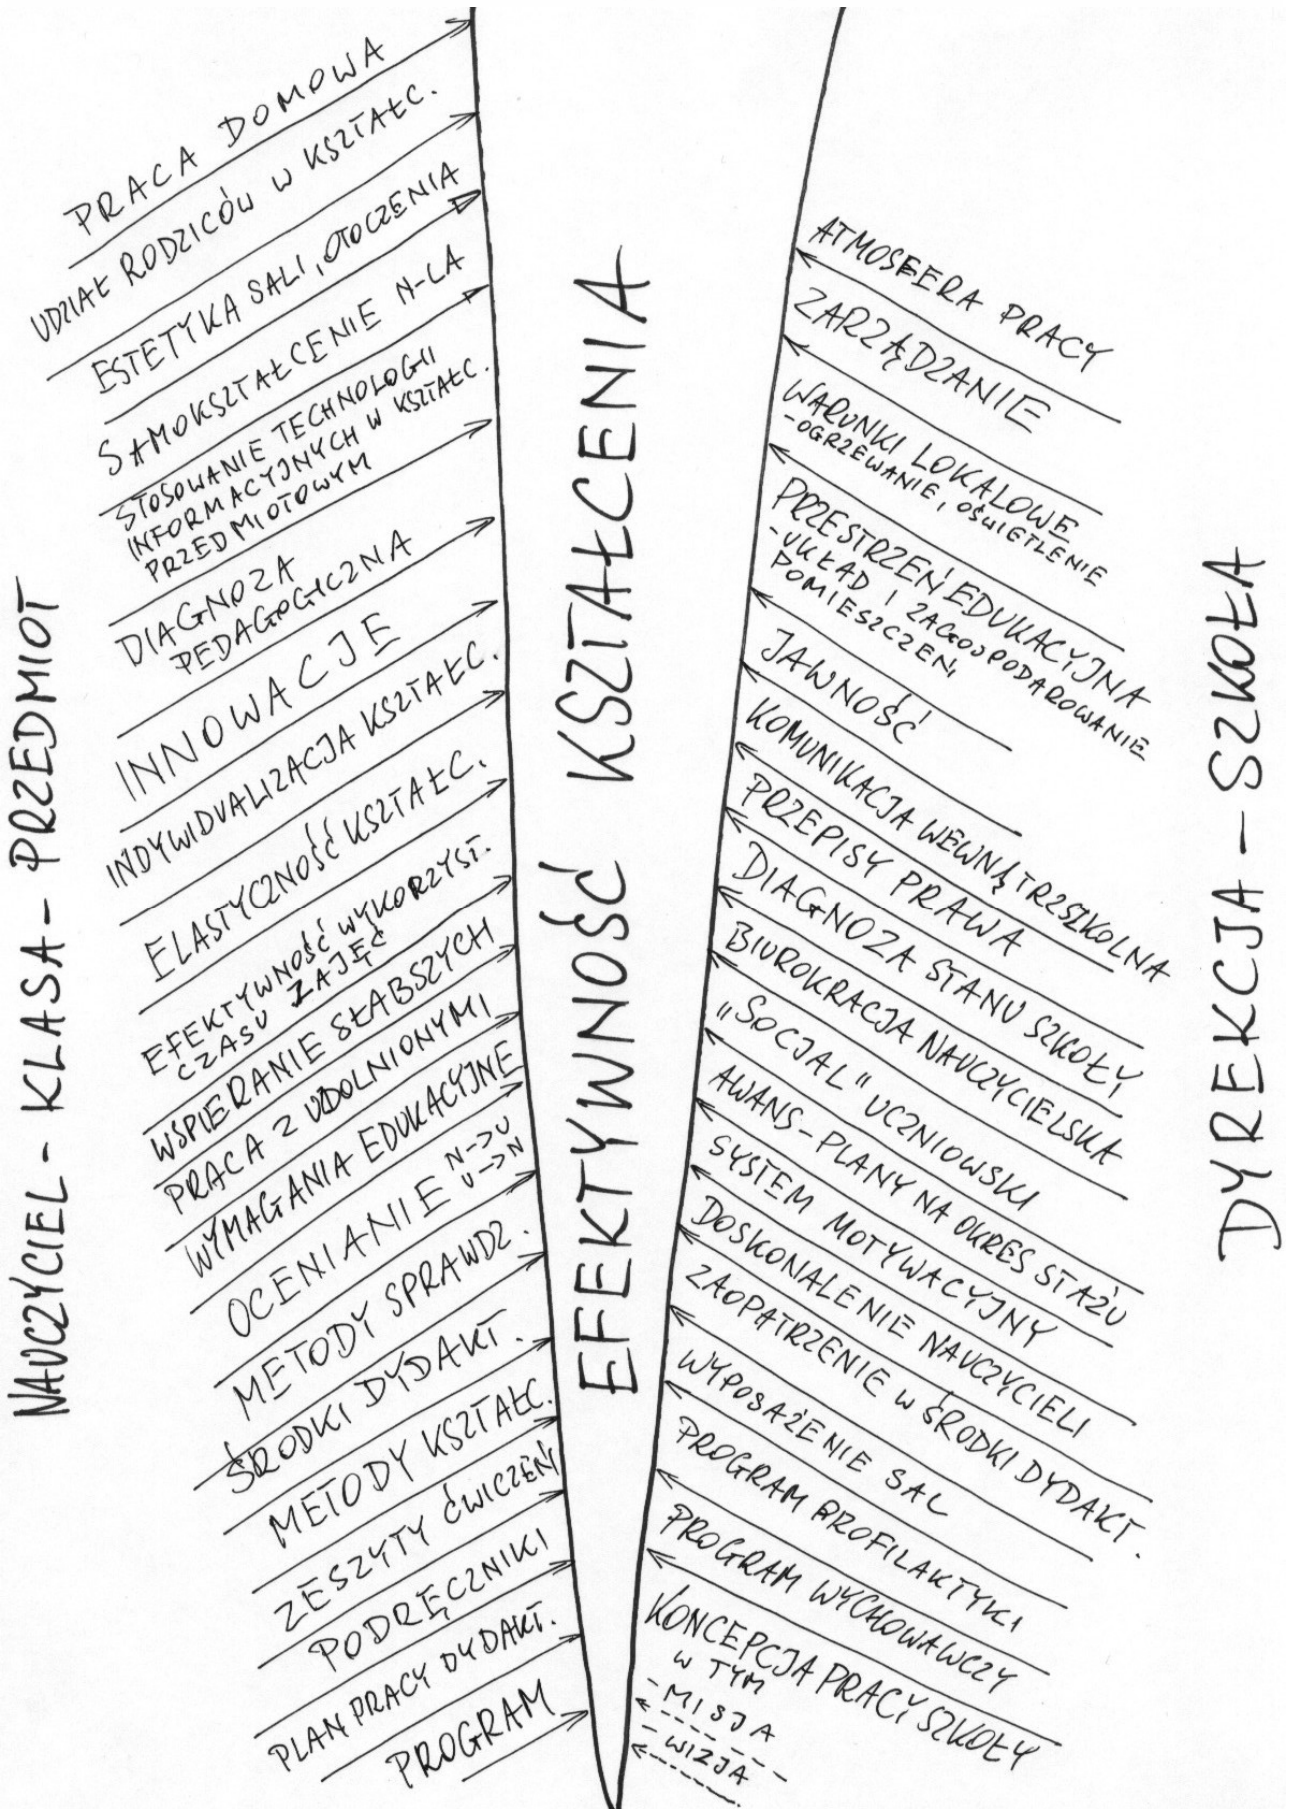 NAUCZYCIEL - KLASA - PRZEDMIOT
PRACA DOMOWA
UDZIAŁ RODZICÓW W KSZTAŁC.
ESTETYKA SALI, OTOCZENIA
SAMOKSZTAŁCENIE N-LA
STOSOWANIE TECHNOLOGII
INFORMACYJNYCH W KSZTAŁC.
PRZEDMIOTOWYM
DIAGNOZA
PEDAGOGICZNA
INNOWACJE
INDYWIDUALIZACJA KSZTAŁC.
ELASTYCZNOŚĆ KSZTAŁC.
EFEKTYWNOŚĆ WYKORZYST.
CZASU ZAJĘĆ
WSPIERANIE SŁABSZYCH
PRACA Z UDOLNIONYMI
WYMAGANIA EDUKACYJNE
OCENIANIE N->U
U->N
METODY SPRAWDZ.
ŚRODKI DYDAKT.
METODY KSZTAŁC.
ZESZYTY ĆWICZEŃ
PODRĘCZNIKI
PLAN PRACY DYDAKT.
PROGRAM
EFEKTYWNOŚĆ KSZTAŁCENIA
ATMOSFERA PRACY
ZARZĄDZANIE
WARUNKI LOKALOWE
- OGRZEWANIE, OŚWIETLENIE
PRZESTRZEŃ EDUKACYJNA
- UKŁAD I ZAGOSPODAROWANIE
POMIESZCZEŃ
JAWNOŚĆ
KOMUNIKACJA WEWNĄTRZSZKOLNA
PRZEPISY PRAWA
DIAGNOZA STANU SZKOŁY
BIUROKRACJA NAUCZYCIELSKA
"SOCJAL" UCZNIOWSKI
AWANS - PLANY NA OKRES STAŻU
SYSTEM MOTYWACYJNY
DOSKONALENIE NAUCZYCIELI
ZAOPATRZENIE W ŚRODKI DYDAKT.
WYPOSAŻENIE SAL
PROGRAM PROFILAKTYKI
PROGRAM WYCHOWAWCZY
KONCEPCJA PRACY SZKOŁY
W TYM
- MISJA
- WIZJA
DYREKCJA - SZKOŁA